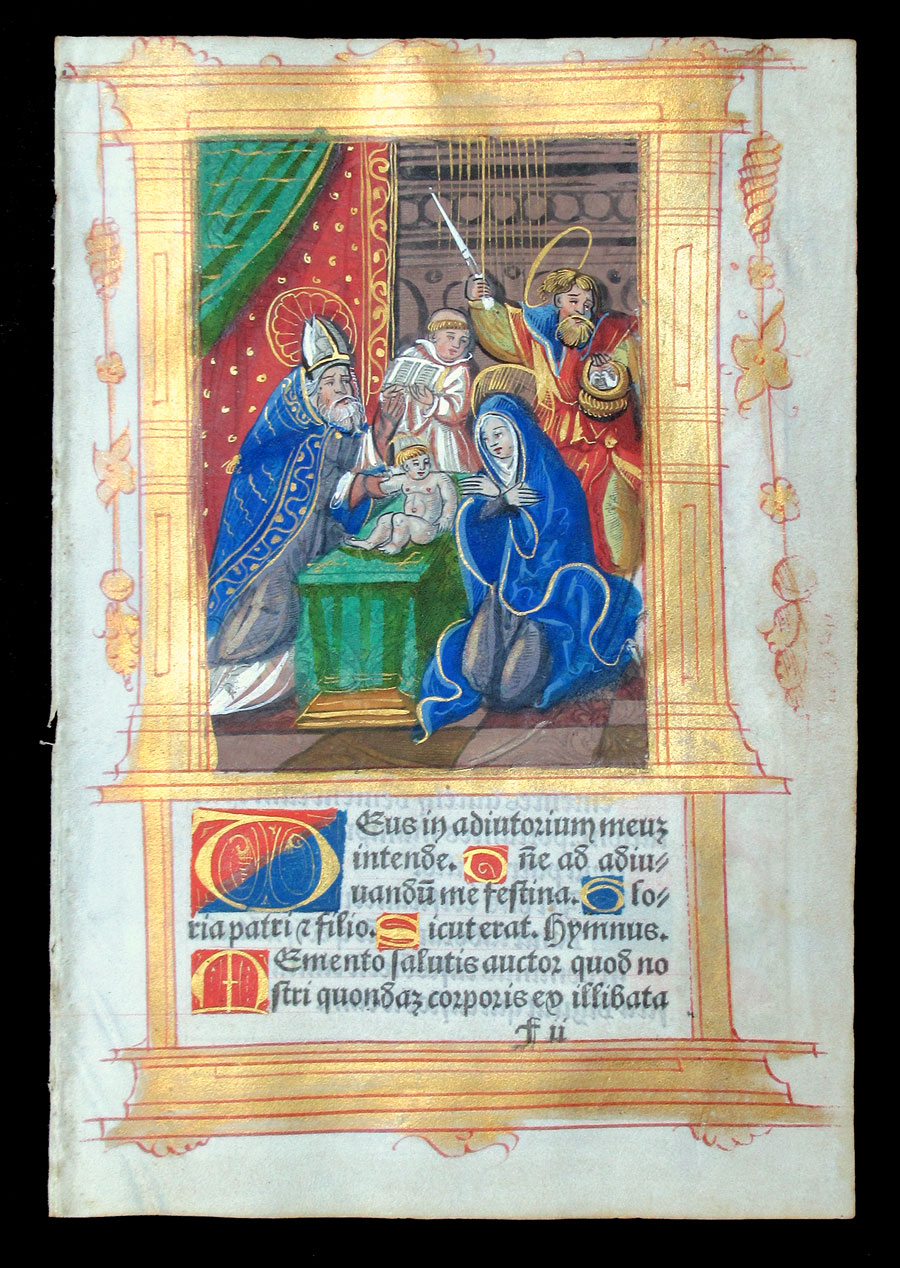 DEus in adiutorium meuz
intende. Dñe ad adiu-
uandũ me festina. Glo-
ria patri ⁊ filio. Sicut erat. Hymnus.
MEmento salutis auctor quod no
stri quondaz corporis ex illibata
F ii